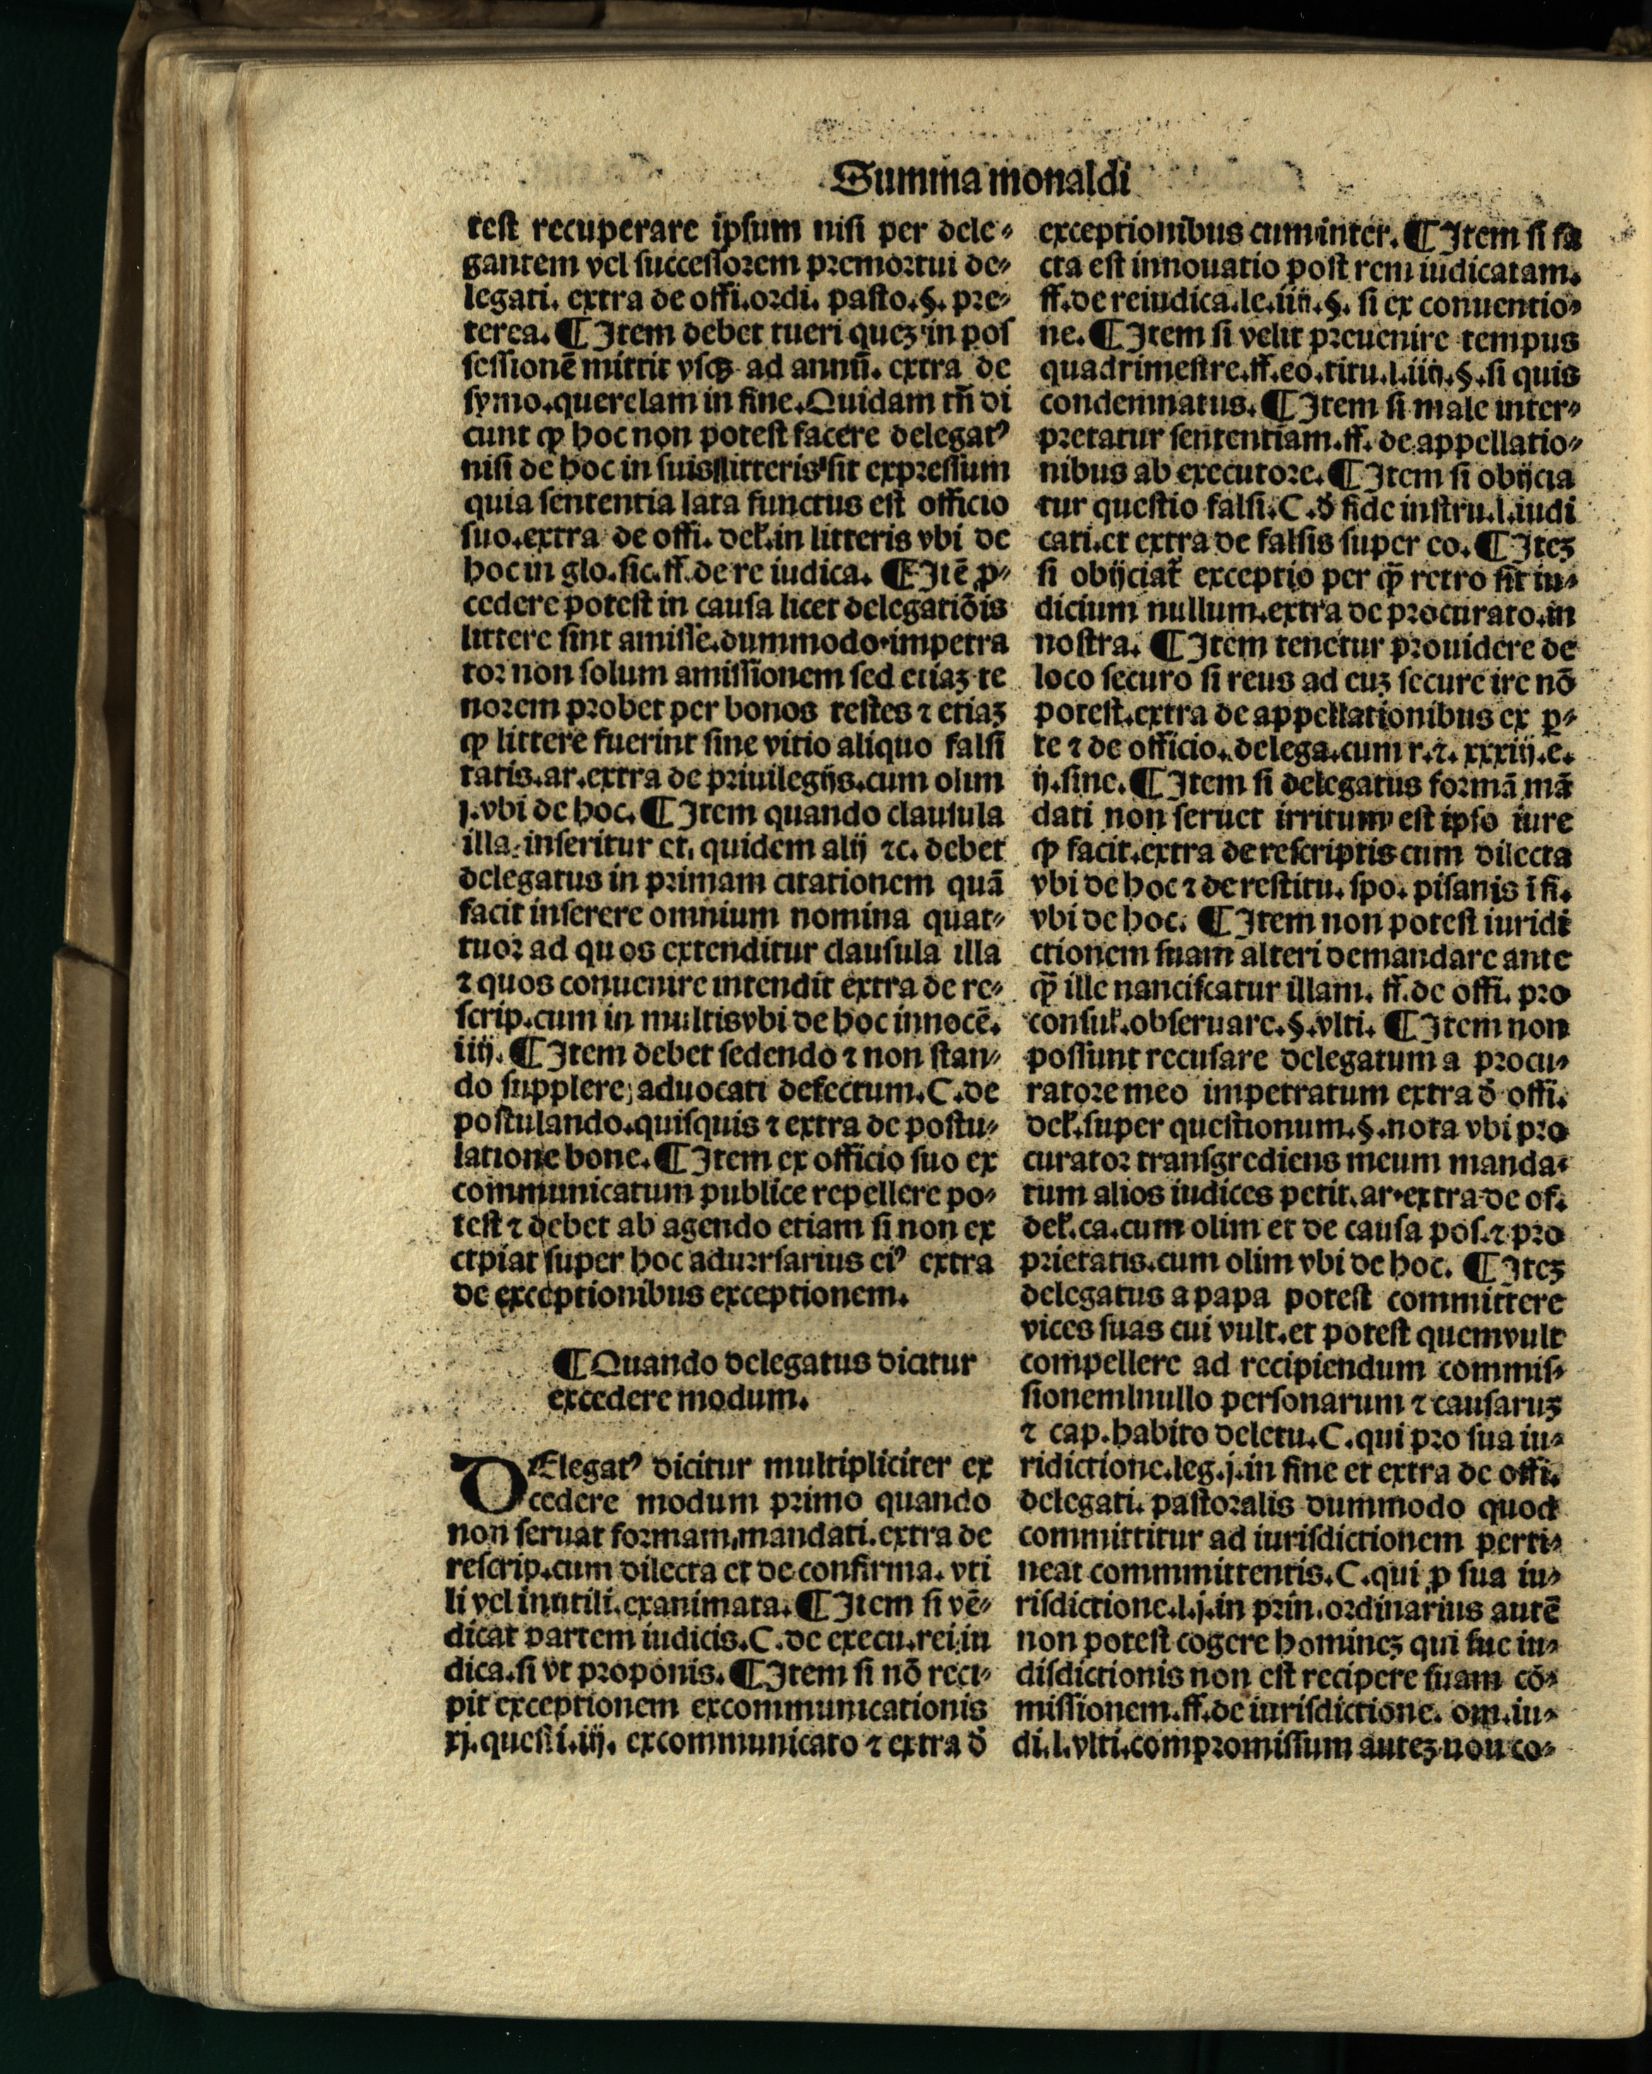 Summa monaldi
test recuperare ipsum nisi per dele⸗
gantem vel successorem premortui de⸗
legati. extra de offi. ordi. pasto. §. pre⸗
terea. ¶ Item debet tueri quez in pos
sessionē mittit vsqꝫ ad annū. extra de
symo. querelam in fine. Quidam tn̄ di
cunt ꝙ hoc non potest facere delegatꝰ
nisi de hoc in suis litteris sit expressum
quia sententia lata functus est officio
suo. extra de offi. deł. in litteris vbi de
hoc in glo. sic. ff. de re iudica. ¶ Itē ꝓ⸗
cedere potest in causa licet delegatiōis
littere sint amisse. dummodo impetra
tor non solum amissionem sed etiaz te
norem probet per bonos testes ⁊ etiaz
ꝙ littere fuerint sine vitio aliquo falsi
tatis. ar. extra de priuilegijs. cum olim
j. vbi de hoc. ¶ Item quando clausula
illa inseritur et. quidem alij ⁊c. debet
delegatus in primam citationem quā
facit inserere omnium nomina quat⸗
tuor ad quos extenditur clausula illa
⁊ quos conuenire intendit extra de re⸗
scrip. cum in multis vbi de hoc innocē.
iiij. ¶ Item debet sedendo ⁊ non stan⸗
do supplere aduocati defectum. C. de
postulando. quisquis ⁊ extra de postu⸗
latione bone. ¶ Item ex officio suo ex
communicatum publice repellere po⸗
test ⁊ debet ab agendo etiam si non ex
ctpiat super hoc aduersarius eiꝰ extra
de exceptionibus exceptionem.
¶ Quando delegatus dicitur
excedere modum.
DElegatꝰ dicitur multipliciter ex
cedere modum primo quando
non seruat formam mandati. extra de
rescrip. cum dilecta et de confirma. vti
li vel inutili. exanimata. ¶ Item si vē⸗
dicat partem iudicis. C. de execu. rei iu
dica. si vt proponis. ¶ Item si nō reci⸗
pit exceptionem excommunicationis
xj. questi. iij. excommunicato ⁊ extra ð
exceptionibus cum inter. ¶ Item si fa
cta est innouatio post rem iudicatam.
ff. de reiudica. le. iiij. §. si ex conuentio⸗
ne. ¶ Item si velit preuenire tempus
quadrimestre. ff. eo. titu. l. iiij. §. si quis
condemnatus. ¶ Item si male inter⸗
pretatur sententiam. ff. de appellatio⸗
nibus ab executore. ¶ Item si obijcia
tur questio falsi. C. ð fide instru. l. iudi
cati. et extra de falsis super eo. ¶ Itez
si obijciat̃ exceptio per ꝙ̄ retro fit iu⸗
dicium nullum. extra de procurato. in
nostra. ¶ Item tenetur prouidere de
loco securo si reus ad euz secure ire nō
potest. extra de appellationibus ex ꝑ⸗
te ⁊ de officio. delega. cum r. ⁊. xxxiij. e.
ij. sine. ¶ Item si delegatus formā mā
dati non seruet irritum est ipso iure
ꝙ facit. extra de rescriptis cum dilecta
vbi de hoc ⁊ de restitu. spo. pisanis ī fi.
vbi de hoc. ¶ Item non potest iuridi
ctionem suam alteri demandare ante
ꝙ̄ ille nanciscatur illam. ff. de offi. pro
consuł. obseruare. §. vlti. ¶ Item non
possunt recusare delegatum a procu⸗
ratore meo impetratum extra ð offi.
deł. super questionum. §. nota vbi pro
curator transgrediens meum manda⸗
tum alios iudices petit. ar. extra de of.
deł. ca. cum olim et de causa pos. ⁊ pro
prietatis. cum olim vbi de hoc. ¶ Itez
delegatus a papa potest committere
vices suas cui vult. et potest quemvult
compellere ad recipiendum commis⸗
sionem nullo personarum ⁊ causaruz
⁊ cap. habito deletu. C. qui pro sua iu⸗
ridictione. leg. j. in fine et extra de offi.
delegati. pastoralis dummodo quod
committitur ad iurisdictionem perti⸗
neat commmittentis. C. qui ꝓ sua iu⸗
risdictione. l. j. in prin. ordinarius autē
non potest cogere hominez qui sue iu⸗
disdictionis non est recipere suam cō⸗
missionem. ff. de iurisdictione. om. iu⸗
di. l. vlti. compromissum autez non co⸗